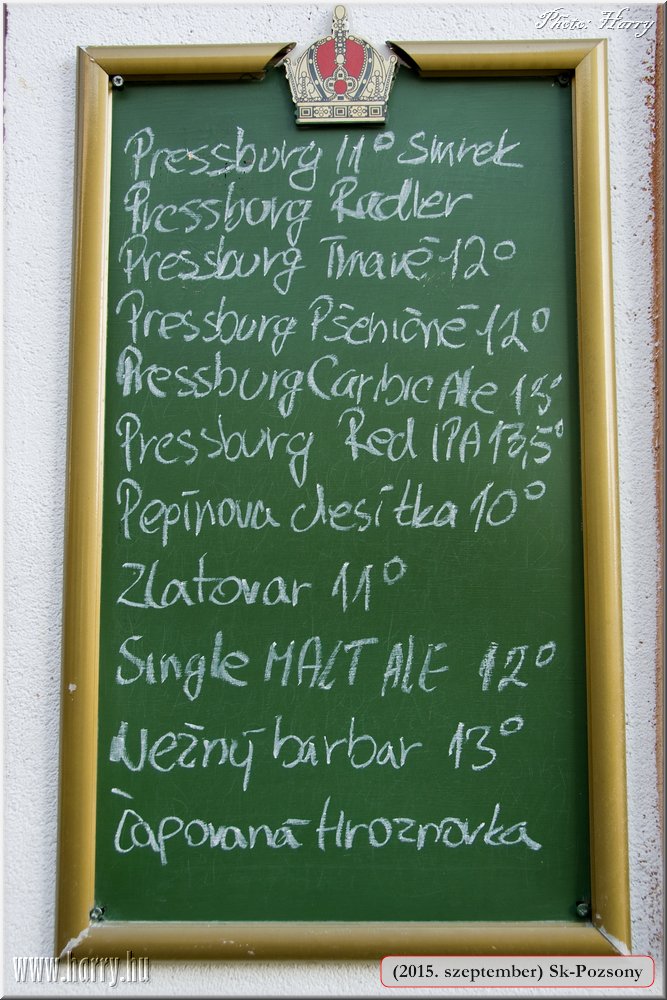 Photo: Harry
Pressburg 11° smrek
Pressburg Radler
Pressburg Tmavé 12°
Pressburg Pšeničné 12°
Pressburg Carbic Ale 13°
Pressburg Red IPA 13,5°
Pepínova desítka 10°
Zlatovar 11°
Single MALT ALE 12°
Nežný barbar 13°
Čapovaná Hroznovka
www.harry.hu
(2015. szeptember) Sk-Pozsony